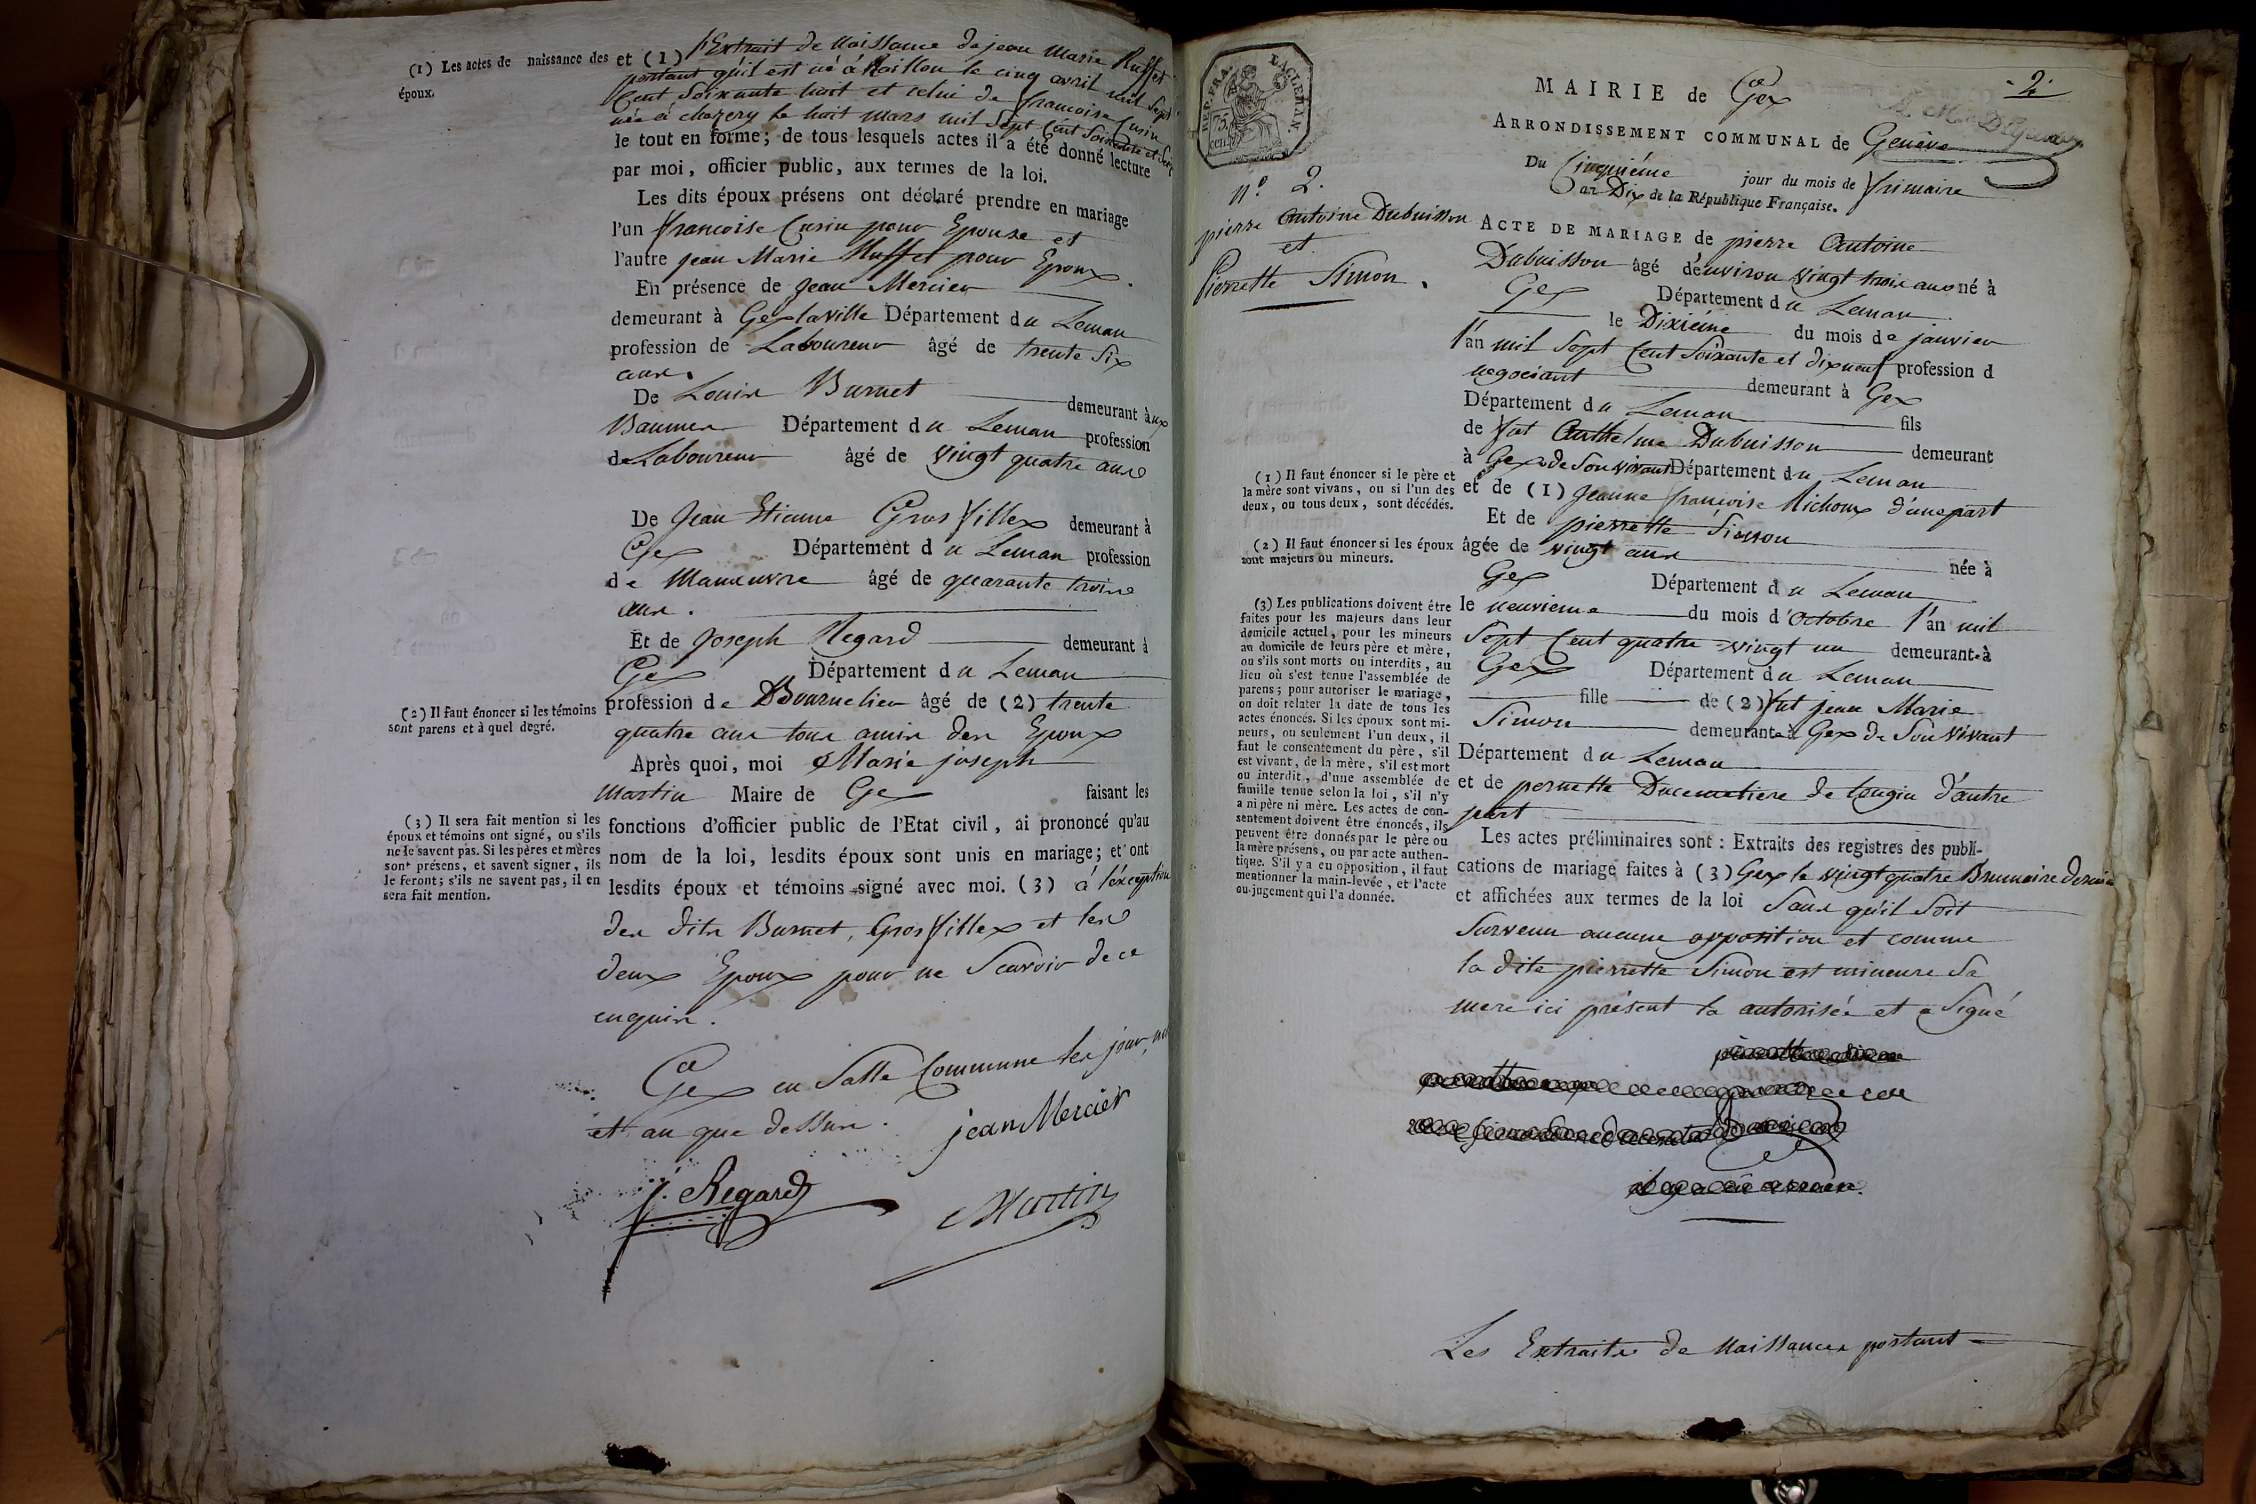 (1) Les actes de naissance des
époux.
et (1) l'Extrait de Naissance de jean Marie Ruffet
portant qu'il est né à Maillou le cinq avril mil Sept
Cent Soixante huit et celui de francoise Cusin
née à chezery le huit mars mil Sept Cent Soixante et
le tout en forme; de tous lesquels actes il a été donné lecture
par moi, officier public, aux termes de la loi.
Les dits époux présens ont déclaré prendre en mariage
l'un francoise Cusin pour Epouse et
l'autre jean Marie Ruffet pour Epoux.
En présence de Jean Mercier
demeurant à Gex laville Département du Leman
profession de Laboureur âgé de trente Six
ans.
De Louis Burnet demeurant aux
Baumes Département du Leman profession
de Laboureur âgé de vingt quatre ans
De Jean Etienne Gros fillex demeurant à
Gex Département du Leman profession
de Manœuvre âgé de quarante trois
ans.
Et de Joseph Regard demeurant à
Gex Département du Leman
(2) Il faut énoncer si les témoins
sont parens et à quel degré.
profession de Bourrelier âgé de (2) trente
quatre ans tous amis des Epoux
Après quoi, moi Marie joseph
Martin Maire de Gex faisant les
(3) Il sera fait mention si les
époux et témoins ont signé, ou s'ils
ne le savent pas. Si les pères et mères
sont présens, et savent signer, ils
le feront; s'ils ne savent pas, il en
sera fait mention.
fonctions d'officier public de l'Etat civil, ai prononcé qu'au
nom de la loi, lesdits époux sont unis en mariage; et ont
lesdits époux et témoins signé avec moi. (3) à l'exception
des dits Burnet, Gros fillex et les
deux Epoux pour ne Scavoir de ce
enquis.
Gex en Salle Commune les jour, mois
et an que dessus.
jean Mercier
J. Regard
Martin
2
MAIRIE de Gex
ARRONDISSEMENT COMMUNAL de Genève
Du Cinquiéme jour du mois de frimaire
an Dix de la République Française.
REP. FRA.
75
cen.
nº 2.
pierre Antoine Dubuisson
et
Pierrette Simon.
ACTE DE MARIAGE de pierre Antoine
Dubuisson âgé d'environ vingt trois ans né à
Gex Département du Leman
le Dixiéme du mois de janvier
l'an mil Sept Cent Soixante et dix neuf profession d
negociant demeurant à Gex
Département du Leman fils
de fut Anthelme Dubuisson demeurant
à Gex de Son vivant Département du Leman
(1) Il faut énoncer si le père et
la mère sont vivans, ou si l'un des
deux, ou tous deux, sont décédés.
et de (1) Jeanne francoise Michoux d'une part
Et de pierrette Simon
(2) Il faut énoncer si les époux
sont majeurs ou mineurs.
âgée de vingt ans née à
Gex Département du Leman
le neuvieme du mois d'Octobre l'an mil
Sept Cent quatre vingt un demeurante à
Gex Département du Leman
fille de (2) fut jean Marie
Simon demeurante à Gex de Son vivant
Département du Leman
et de pernette Ducemetiere de Cougin d'autre
part
(3) Les publications doivent être
faites pour les majeurs dans leur
domicile actuel, pour les mineurs
au domicile de leurs père et mère,
ou s'ils sont morts ou interdits, au
lieu où s'est tenue l'assemblée de
parens; pour autoriser le mariage,
on doit relater la date de tous les
actes énoncés. Si les époux sont mi-
neurs, ou seulement l'un deux, il
faut le consentement du père, s'il
est vivant, de la mère, s'il est mort
ou interdit, d'une assemblée de
famille tenue selon la loi, s'il n'y
a ni père ni mère. Les actes de con-
sentement doivent être énoncés, ils
peuvent être donnés par le père ou
la mère présens, ou par acte authen-
tique. S'il y a eu opposition, il faut
mentionner la main-levée, et l'acte
ou jugement qui l'a donnée.
Les actes préliminaires sont : Extraits des registres des publi-
cations de mariage faites à (3) Gex le vingt quatre Brumaire dernier
et affichées aux termes de la loi Sans qu'il Soit
Survenu aucune opposition et comme
la dite pierrette Simon est mineure Sa
mere ici présent la autorisée et a Signé
Les Extraits de Naissances portant